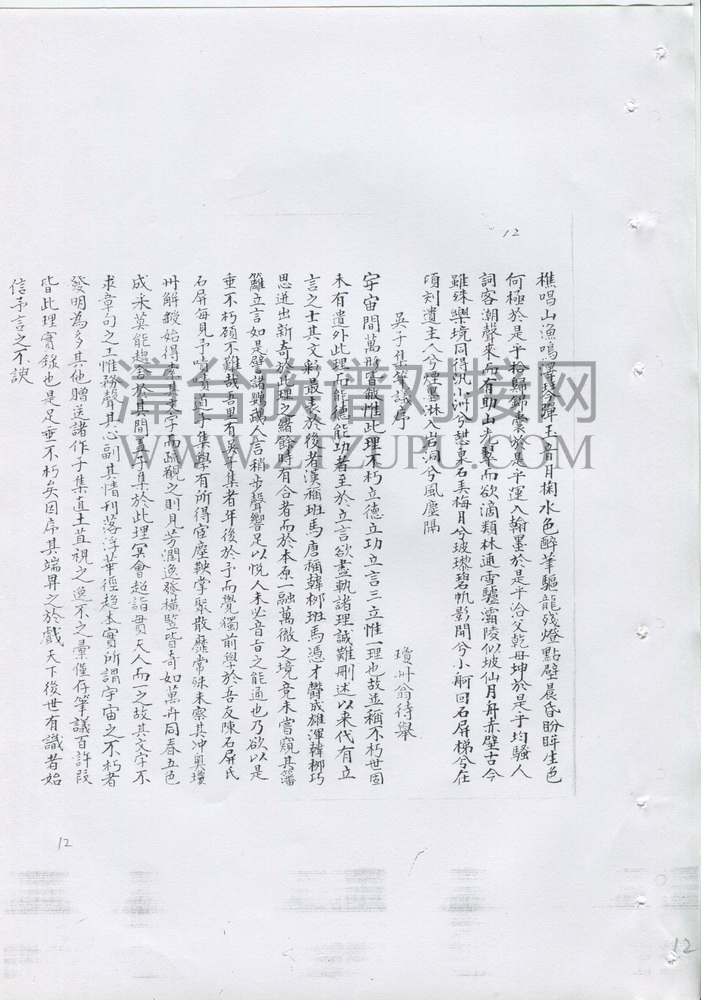 12
樵唱山漁鳴澤琴彈玉音月掬水色醉筆驅龍殘燈點壁晨昏盼眸生色
何極於是乎拾歸錦雲於是乎運入翰墨於是乎洽父乾母坤於是乎均騷人
詞客潮聲來而有助山光擊而欲滴類林逋雪驢灞陵似坡仙月舟赤壁古今
雖殊樂境同得況小洲兮憩東石美梅月兮玻瓈碧帆影間兮小舸回石屏梯兮在
頃刻遺主人兮煙墨淋入岩洞兮風塵隔
吳子集筆議序 瓊州翁待舉
宇宙間萬形皆敝惟此理不朽立德立功立言三立惟一理也故並稱不朽世固
未有遺外此理而能德能功者至於立言欲盡軌諸理誠難刪述以來代有立
言之士其文彩最表於後者漢稱班馬唐稱韓柳班馬憑才欝成雄渾韓柳巧
思迸出新奇於此理之緒餘時有合者而於本原一融萬徹之境竟未嘗窺其籓
籬立言如是譬諸鸚鵡人言稍步聲響足以悅人未必音旨之能通也乃欲以是
垂不朽顧不難哉吾里有吳子集者年後於予而覺獨前學於吾友陳石屏氏
石屏每見予嘖嘖道子集學有所得官塵鞅掌聚散靡常殊未察其冲奧瓊
州解綬始得索其文字而疏觀之則見芳潤逸發橫豎皆奇如萬卉同春五色
成采莫能趨舍於其間葢子集於此理冥會超詣貫天人而一之故其文字不
求章句之工惟務聲其心副其情刊落浮華徑趨本實所謂宇宙之不朽者
發明為多其他贈送諸作子集直土苴視之逸不之彙僅存筆議百許段
皆此理實錄也是足垂不朽矣因序其端畀之於戲天下後世有識者始
信予言之不諛
12
12
漳台族谱对接网
WWW.ZTZUPU.COM